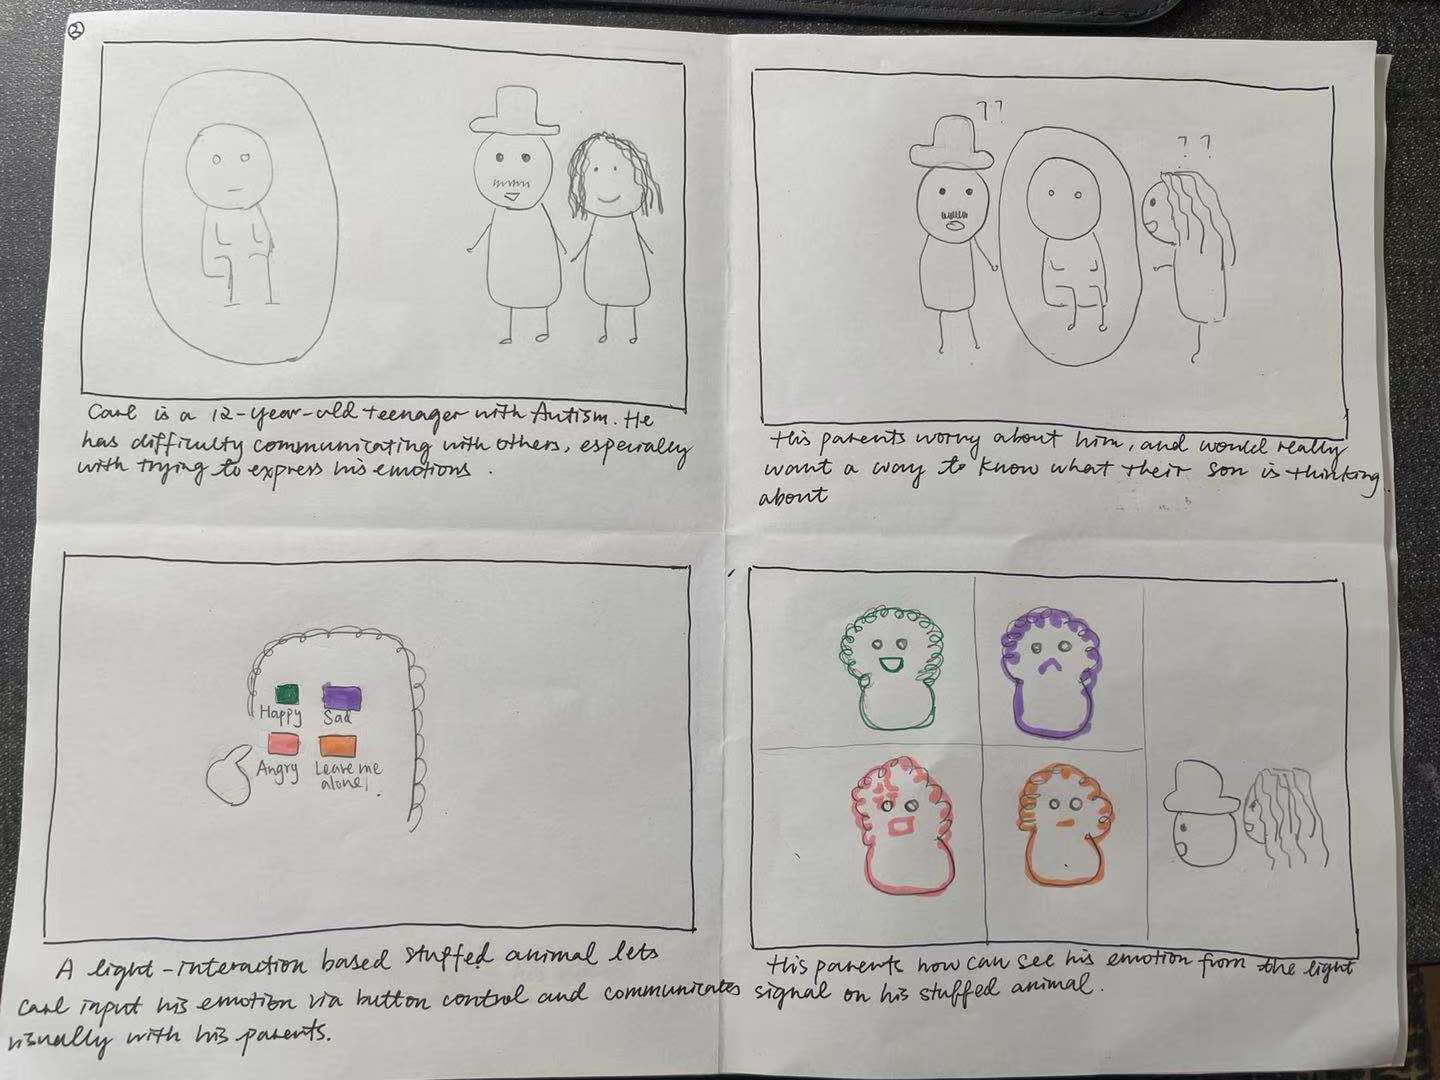 2
Carl is a 12-year-old teenager with Autism. He
has difficulty communicating with others, especially
with trying to express his emotions.
??
??
His parents worry about him, and would really
want a way to know what their son is thinking
about
Happy Sad
Angry Leave me
alone!
A light-interaction based stuffed animal lets
Carl input his emotion via button control and communicates
visually with his parents.
His parents now can see his emotion from the light
signal on his stuffed animal.